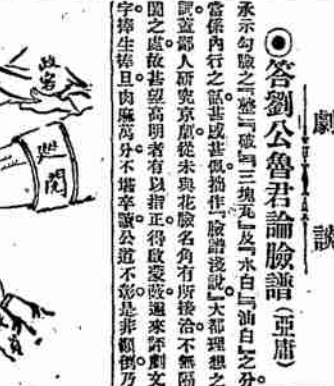 劇談
◉答劉公魯君論臉譜(亞庸)
承示勾臉之『整』『破』『三塊瓦』及『水白』『油白』之分。
當係內行之話甚感甚佩拙作『臉譜淺說』大都理想之
詞。蓋鄙人研究京劇從未與花臉名角有所接洽。不無隔
閡之處。故甚望高明者有以指正。得啟蒙蔽。邇來評劇文
字捧生捧旦肉麻萬分不堪卒讀公道不彰是非顛倒乃
政客
巡閱